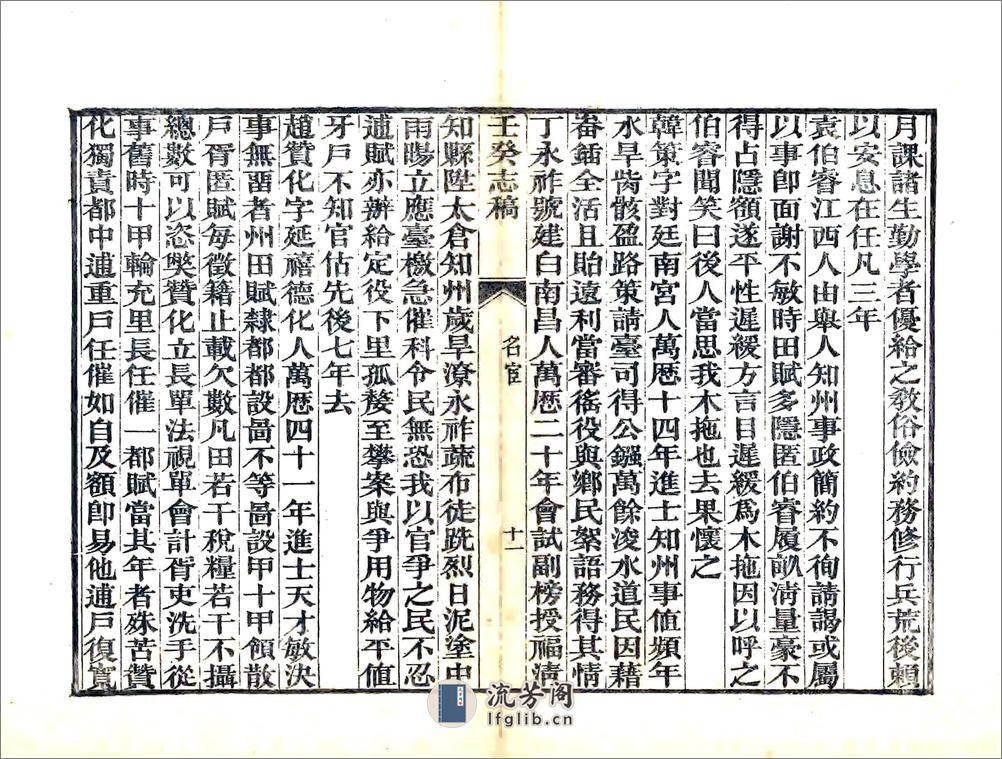 月課諸生勤學者優給之教俗儉約務修行兵荒後頼
以安息在任凡三年
袁伯睿江西人由舉人知州事政簡約不徇請謁或屬
以事卽面謝不敏時田賦多隱匿伯睿履畝淸量豪不
得占隱額遂平性遲緩方言目遲緩爲木拖因以呼之
伯睿聞笑曰後人當思我木拖也去果懷之
韓策字對廷南宮人萬歴十四年進士知州事值頻年
水旱胔骸盈路策請臺司得公鏹萬餘浚水道民因藉
畚鍤全活且貽遠利當審徭役與鄉民絮語務得其情
丁永祚號建白南昌人萬歴二十年會試副榜授福淸
壬癸志稿
名宦
十一
知縣陞太倉知州歲旱潦永祚蔬布徒跣烈日泥塗中
雨暘立應臺檄急催科令民無恐我以官爭之民不忍
逋賦亦辦給定役下里孤嫠至攀案與爭用物給平值
牙戸不知官估先後七年去
趙贊化字延禧德化人萬歴四十一年進士天才敏決
事無畱者州田賦隸都都設啚不等啚設甲十甲領散
戸胥匿賦每徵籍止載欠數凡田若干稅糧若干不攝
總數可以恣獘贊化立長單法視單會計胥吏洗手從
事舊時十甲輪充里長任催一都賦當其年者殊苦贊
化獨責都中逋重戸任催如自及額卽易他逋戸復寬
流芳阁
lfglib.cn